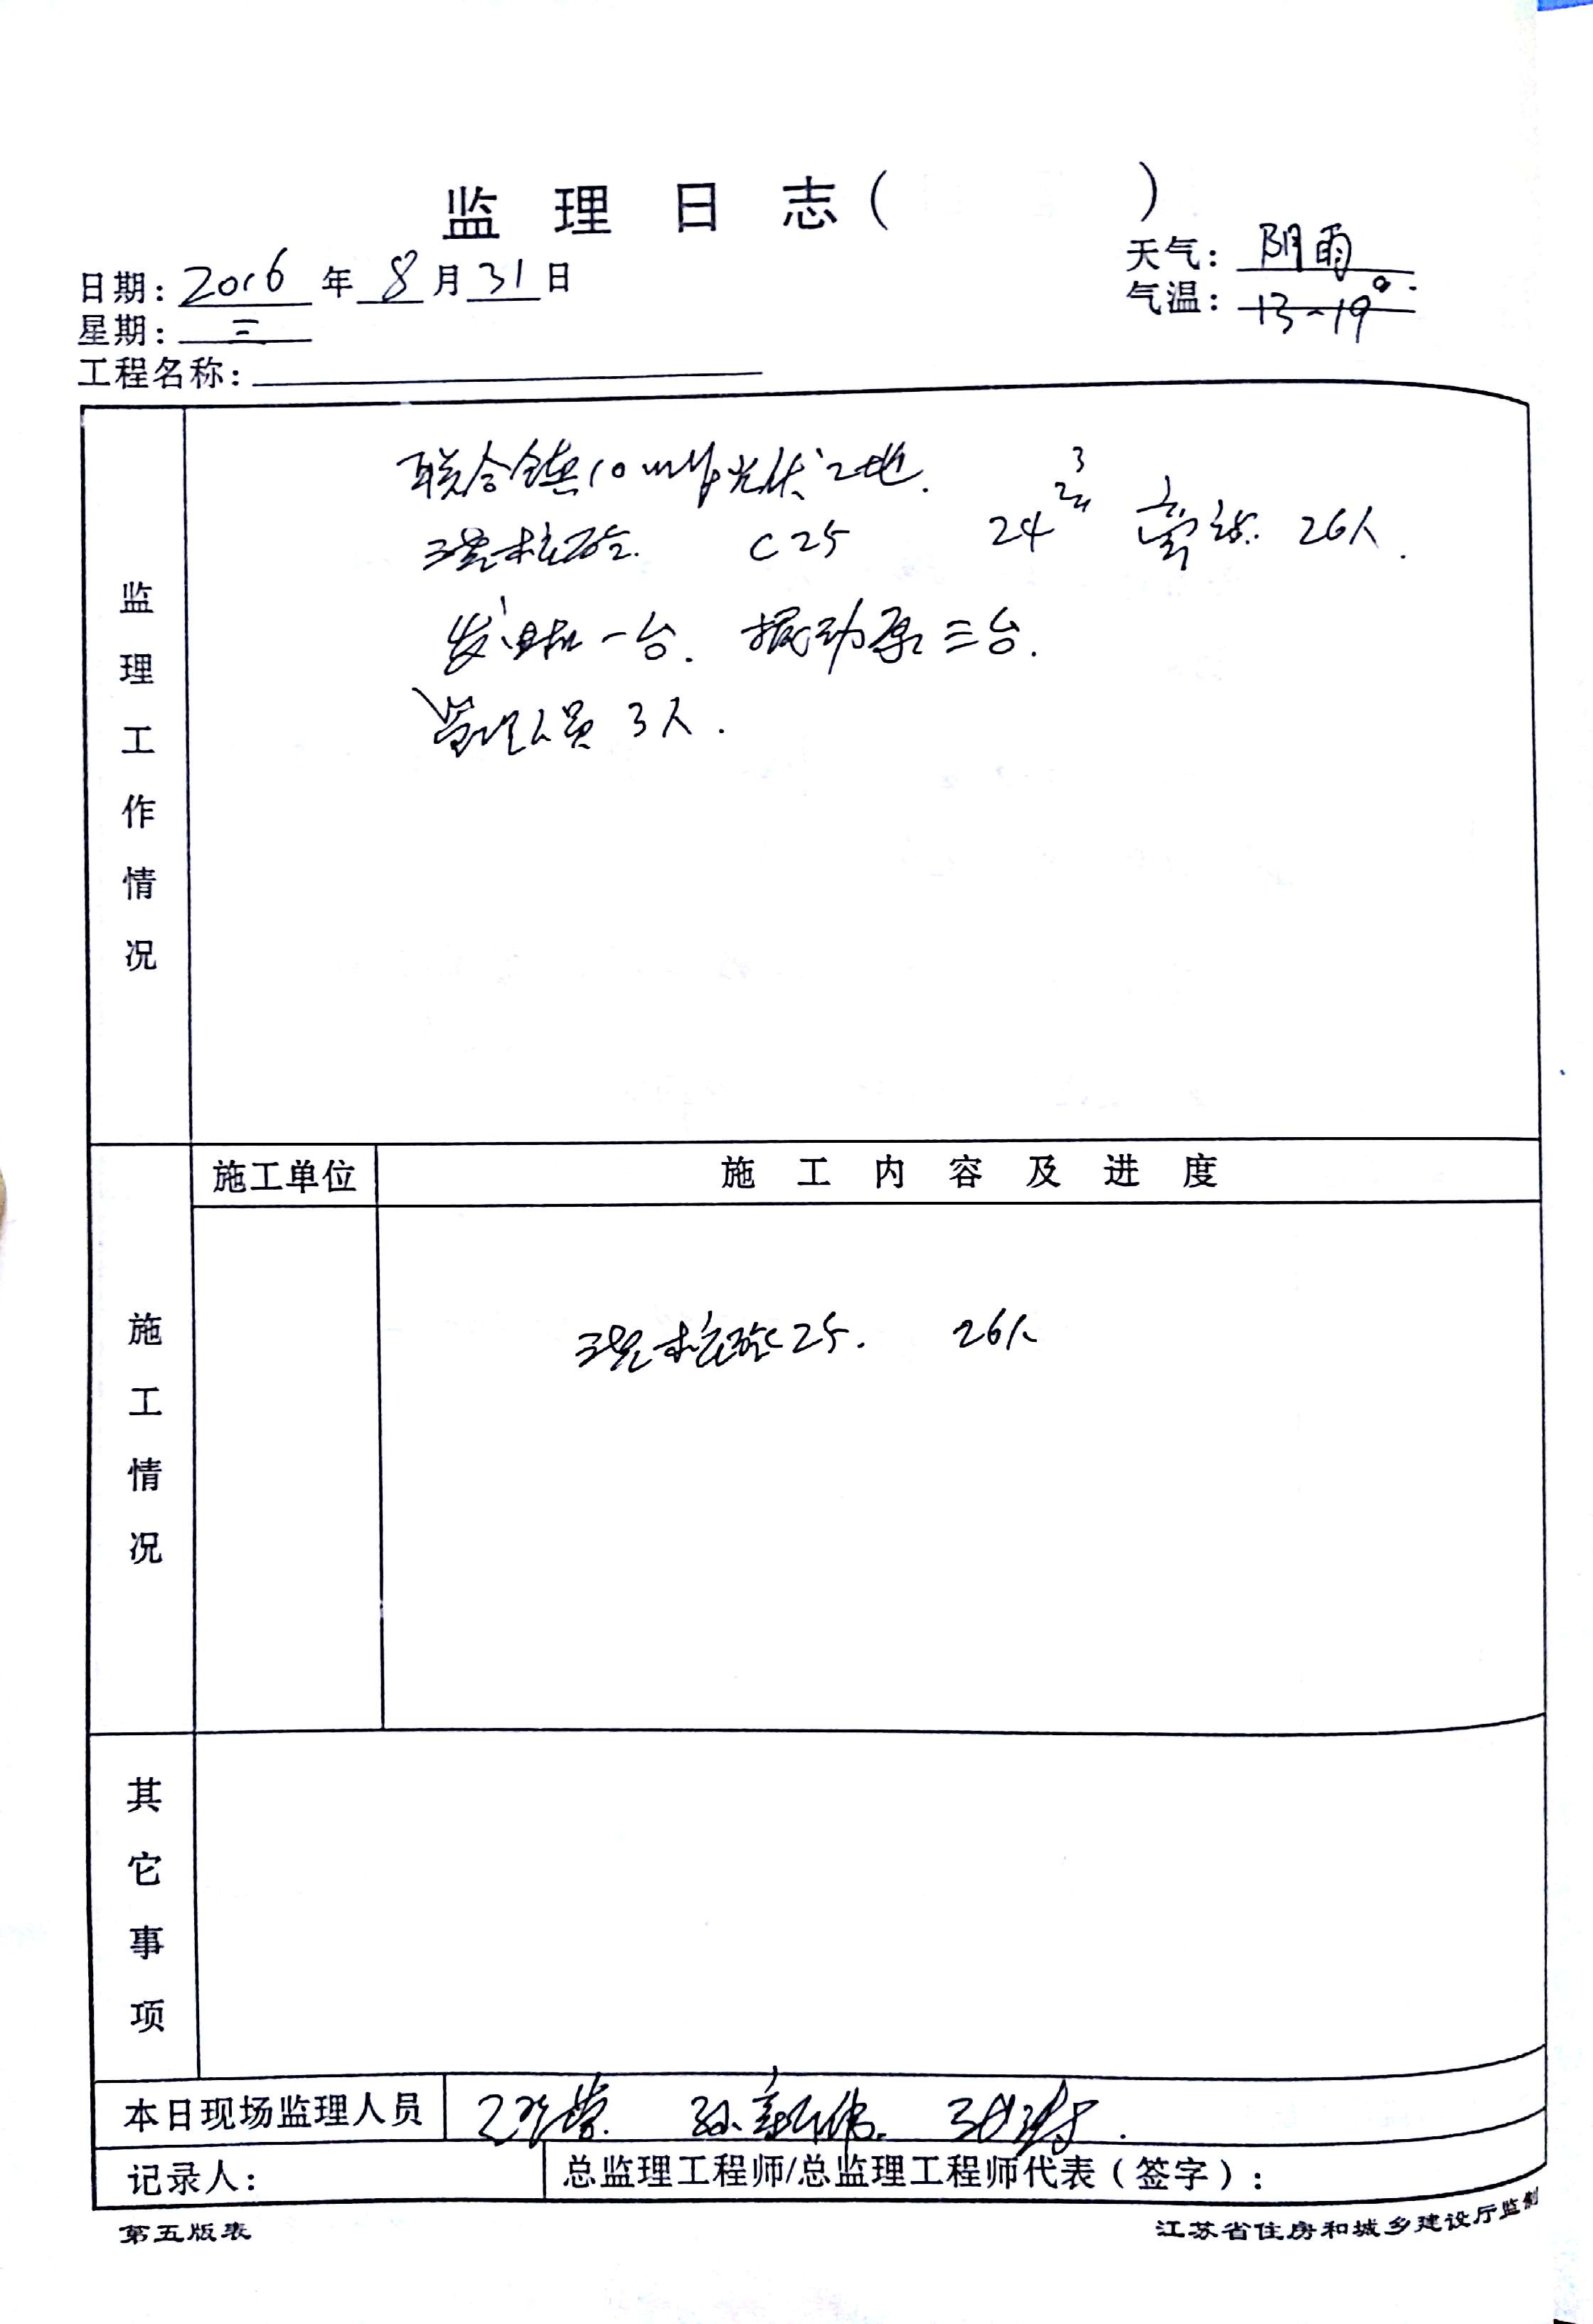 监理日志（ ）
日期：2016年8月31日
天气：阴雨
星期：三
气温：13-19°
工程名称：
监理工作情况
联合镇10MW光伏工地.
C25 24 26人.
发电机一台. 振动泵三台.
管理人员3人.
施工单位 施工内容及进度
施工情况
C25. 26人
其它事项
本日现场监理人员
记录人： 总监理工程师/总监理工程师代表（签字）：
第五版表 江苏省住房和城乡建设厅监制